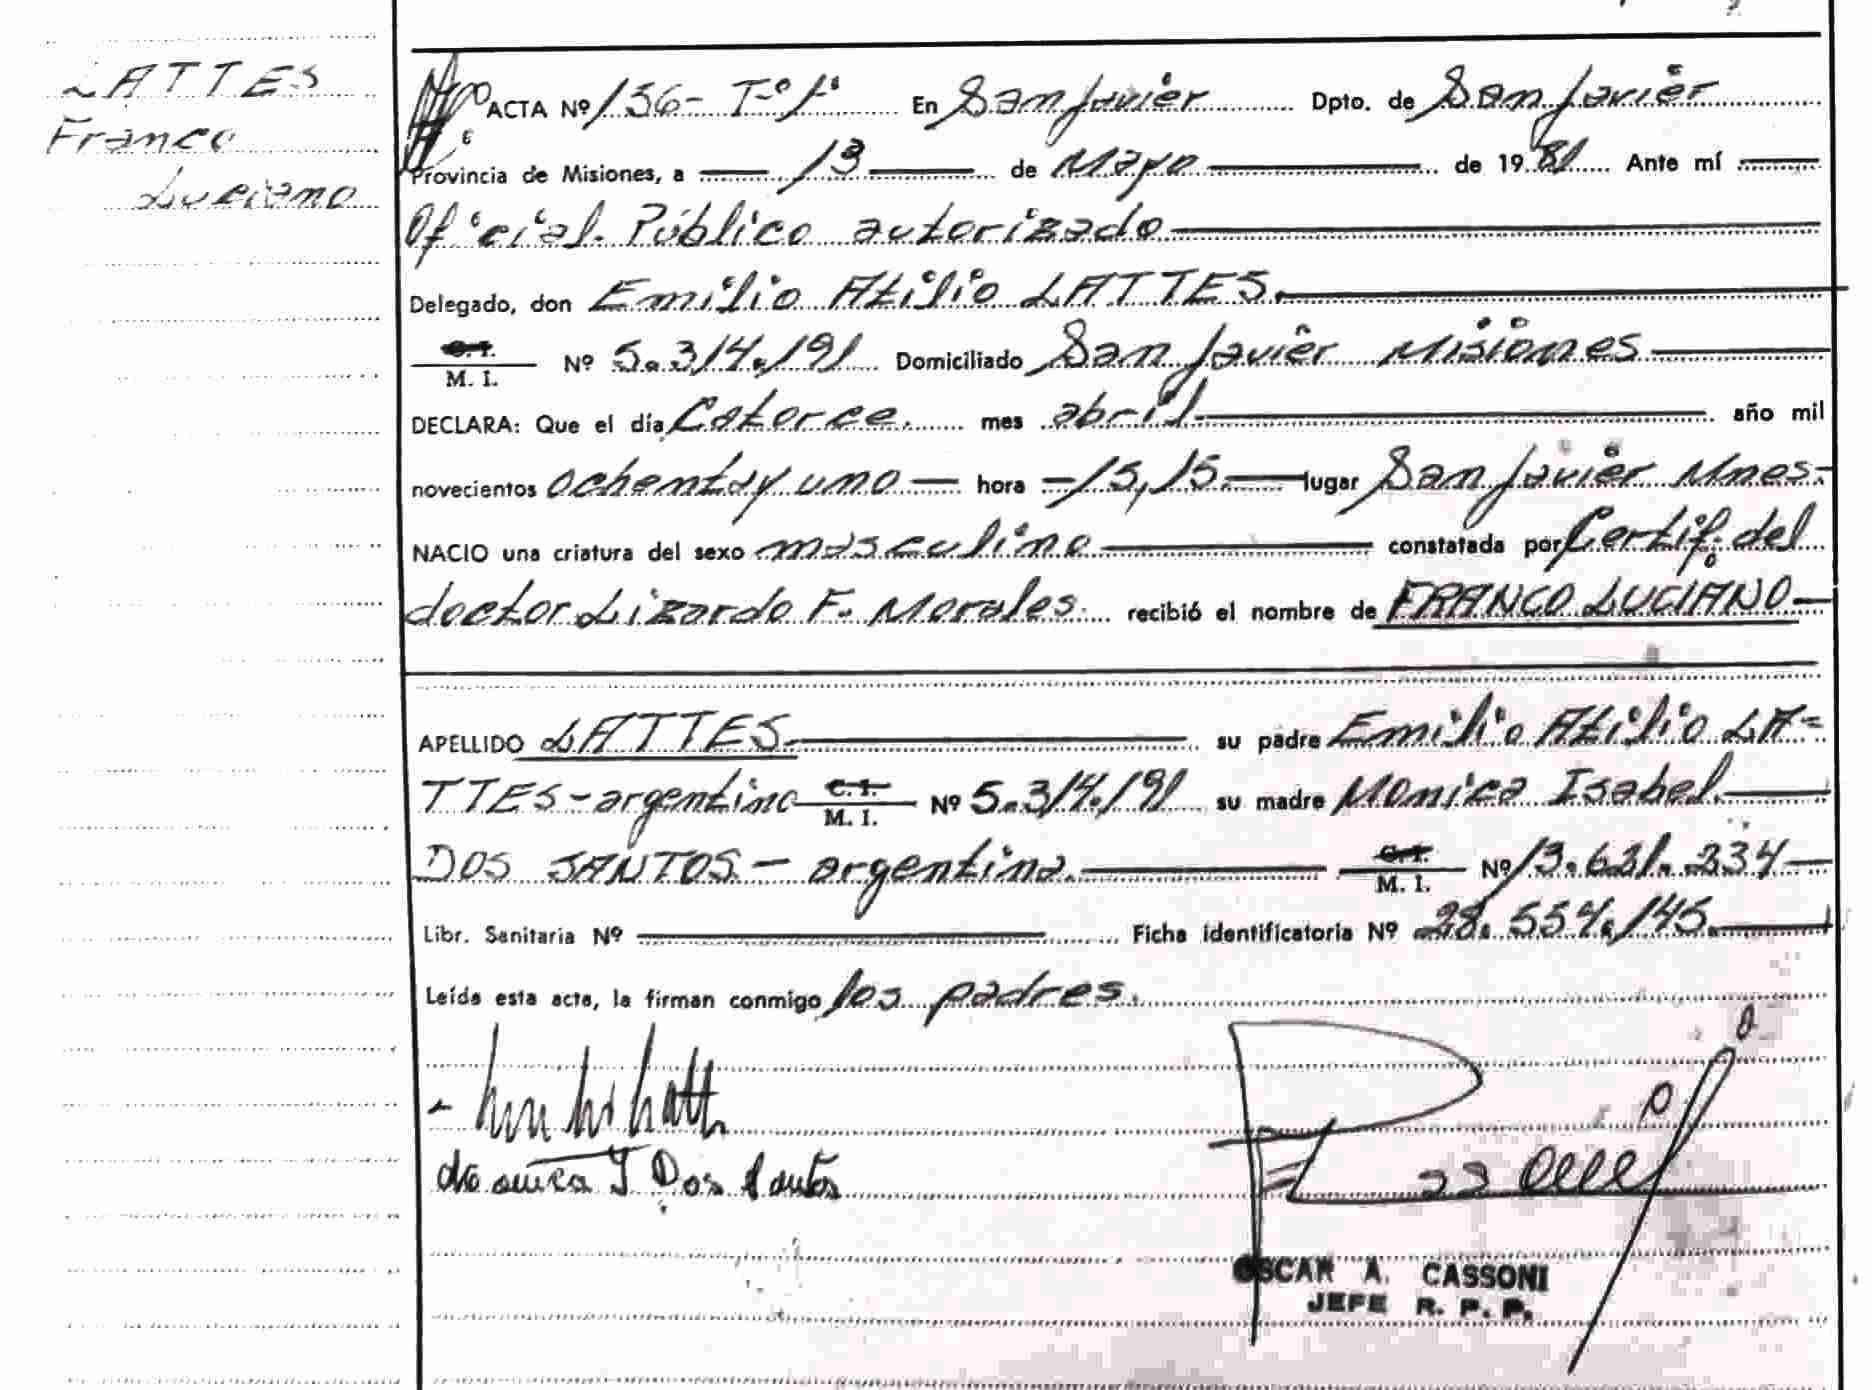 LATTES
Franco
Luciano
ACTA Nº 136- Tº 1º En San Javier Dpto. de San Javier
Provincia de Misiones, a 13 de Mayo de 1981 Ante mí
Oficial Público autorizado
Delegado, don Emilio Atilio LATTES.
C. I.
M. I. Nº 5.314.191 Domiciliado San Javier Misiones
DECLARA: Que el día Catorce. mes abril año mil
novecientos ochentay uno hora 15,15. lugar San Javier Mnes.
NACIO una criatura del sexo masculino constatada por Certif. del
doctor Lizardo F. Morales. recibió el nombre de FRANCO LUCIANO
APELLIDO LATTES su padre Emilio Atilio LA=
TTES-argentino C. I. M. I. Nº 5.314.191 su madre Monica Isabel
DOS SANTOS - argentina. C. I. M. I. Nº 13.631.234
Libr. Sanitaria Nº Ficha Identificatoria Nº 28.554.145.
Leída esta acta, la firman conmigo los padres.
Monica I Dos Santos
OSCAR A. CASSONI
JEFE R. P. P.